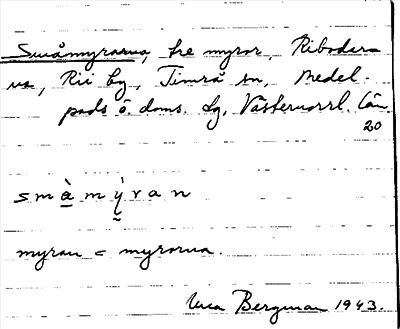 Småmyrarna, tre myror, Ribodar-
na, Rii by, Timrå sn, Medel-
pads ö. doms. lg, Västernorrl. län
20
s m à m ỳ r a n
myran = myrarna.
Bergman 1943.